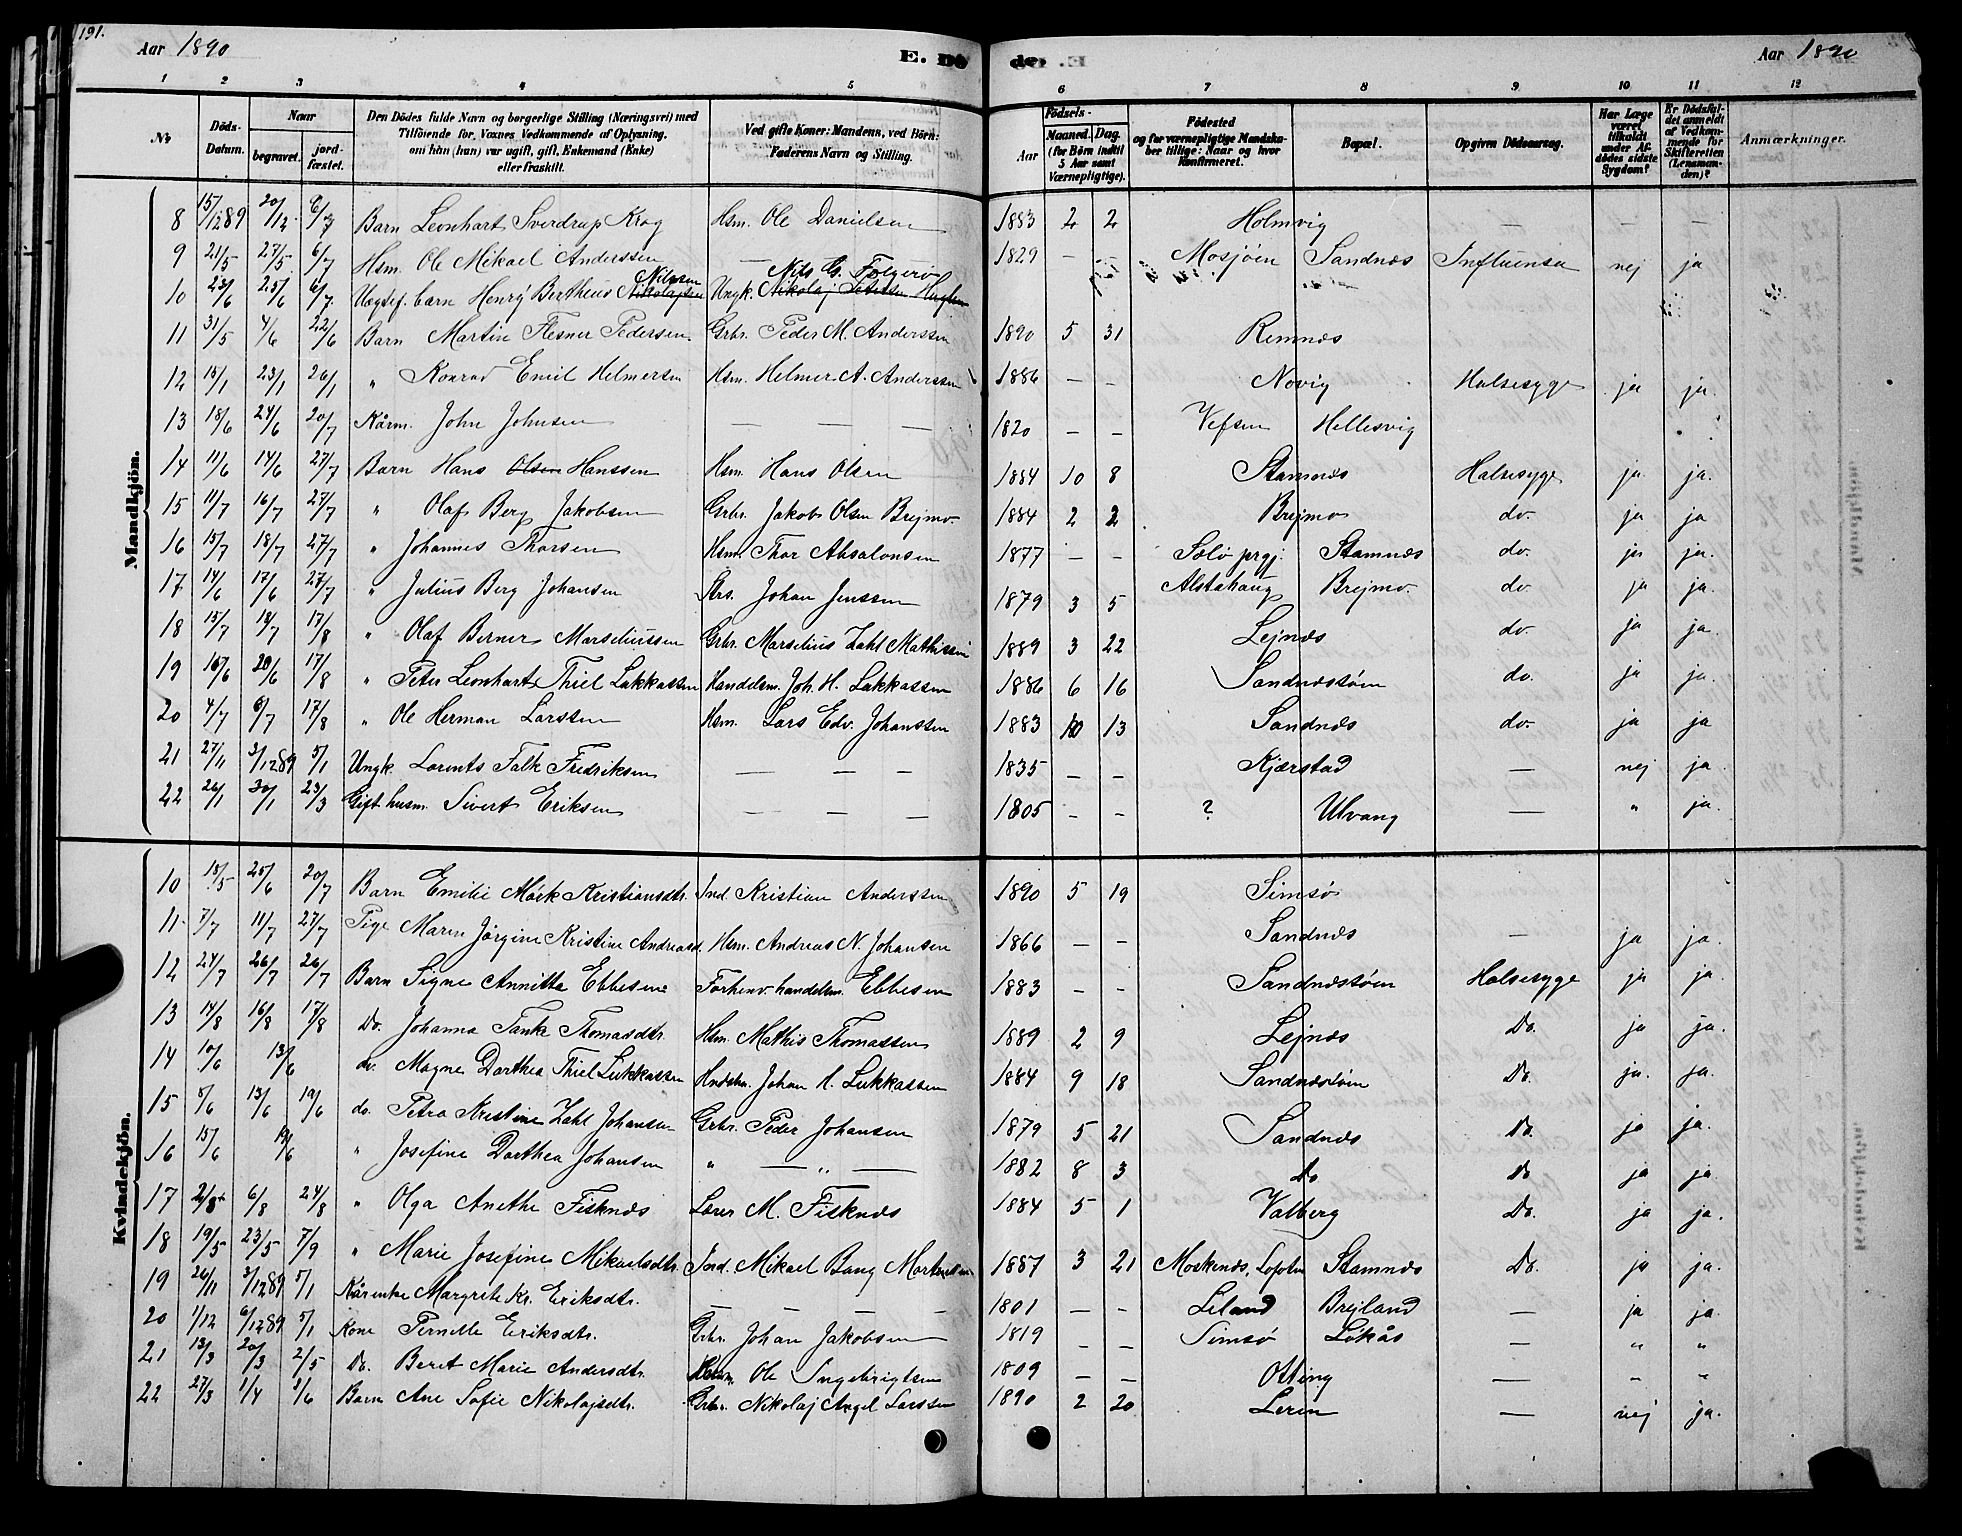 191.
Aar 1890 E. Dö de. Aar 1890
1 2 3 4 5 6 7 8 9 10 11 12
No Döds-Datum. Naar begravet. jord-fæstet. Den Dödes fulde Navn og borgerlige Stilling (Næringsvei) med Tilföiende for Voxnes Vedkommende af Oplysning, om hun (han) var ugift, gift, Enkemand (Enke) eller fraskilt. Ved gifte Koner: Mandens, ved Börn: Faderens Navn og Stilling. Födsels- Aar Maaned. Dag. (for Börn indtil 5 Aar samt Værnepligtige). Födested og for værnepligtige Mandska-ber tillige: Naar og hvor Konfirmeret. Bopæl. Opgiven Dödsaarsag. Har Læge været tilkaldt under Af-dödes sidste Sygdom? Er Dödsfal-det anmeldt af Vedkom-mende for Skifteretten (Lensman-den)? Anmærkninger.
Mandkjön.
8 15/12 89 20/12 6/7 Barn Leonhart Sverdrup Krog Hsm. Ole Danielsen 1883 2 2 Holmvig — — —
9 21/5 27/5 6/7 Hsm. Ole Mikael Anderssen — 1829 — — Mosjöen Sandnæs Influensa nej ja
10 23/6 25/6 6/7 Uægtef. barn Henry Bertheus Nikolajsen Nilssen Ungk. Nikolaj Petersen Nils G. Forgeriv
11 31/5 4/6 22/6 Barn Martin Flesner Pedersen Grbr. Peder M. Anderssen 1890 5 31 Remnæs
12 15/1 23/1 26/1 " Konrad Emil Helmersen Hsm. Helmer A. Anderssen 1886 — — Novig Halsesyge ja ja.
13 18/6 24/6 20/7 Kårm. John Johnsen — — — 1820 — — Vefsen Hellesvig
14 11/6 14/6 27/7 Barn Hans Olsen Hanssen Hsm. Hans Olsen 1884 10 8 Stamnæs Halsesyge ja ja.
15 11/7 16/7 27/7 " Olaf Berg Jakobsen Grbr. Jakob Olsen Brejmo. 1884 2 2 Brejmo do. ja ja
16 15/7 18/7 27/7 " Johannes Thorsen Hsm. Thor Absalonsen 1877 — — Solö prgj. Stamnæs do. ja ja.
17 14/6 17/6 27/7 " Julius Berg Johansen Strs. Johan Jenssen 1879 3 5 Alstahaug Brejmo. do. ja ja.
18 15/7 19/7 17/8 " Olaf Berner Marseliussen Grbr. Marselius Zahl Mathissen 1889 3 22 Lejnæs do. ja ja.
19 16/6 20/6 17/8 " Peter Leonhart Thiel Lukkassen Handelsm. Joh. H. Lukkassen 1886 6 16 Sandnæstöen do. ja ja.
20 4/7 8/7 17/8 " Ole Herman Larssen Hsm. Lars Edv. Johanssen 1883 10 13 Sandnæs do. ja ja
21 27/11 3/12 89 5/1 Ungk. Lorents Falk Fredriksen — — — 1835 — — Kjærstad — nej ja.
22 26/1 30/1 23/3 Gift husm. Sivert Eriksen — — — 1805 — — ? Ulvang — " ja.
Kvindekjön.
10 18/5 25/6 20/7 Barn Emilie Mörk Kristiansdtr. Ind. Kristian Anderssen 1890 5 19 Simsö
11 7/7 11/7 27/7 Pige Maren Jörgine Kristine Andreasd. Hsm. Andreas N. Johansen 1866 — — Sandnæs — ja ja.
12 24/7 26/7 26/7 Barn Signe Annitta Ebbesen Forhenv. handelsm. Ebbesen 1883 — — Sandnæstöen Halsesyge ja ja.
13 14/8 16/8 17/8 Do. Johanna Tank Thomasdtr. Hsm. Mathis Thomassen 1889 2 9 Lejnæs Do. ja ja.
14 10/6 13/6 do. Magne Dorthea Thiel Lukkassen Hndsm. Johan H. Lukkassen 1884 9 18 Sandnæstöen Do. ja. ja.
15 8/6 13/6 19/6 do. Petra Kristine Zahl Johansen Grbr. Peder Johansen 1879 5 21 Sandnæs Do. ja ja.
16 15/6 19/6 " Josefine Dorthea Johansen " — " — 1882 8 3 Do Do ja ja.
17 2/8 6/8 24/8 " Olga Anethe Fisknæs Lærer M. Fisknæs 1884 5 1 Valberg Do. ja ja.
18 19/5 23/5 7/9 " Marie Josefine Mikaelsdtr. Ind. Mikael Bang Mortensen 1887 3 21 Moskenæs, Lofoten Stamnæs Do. ja ja.
19 26/11 3/12 89 5/1 Kårenke Margrete Kr. Eriksdtr. — — — — 1801 — — Leland Brejland — ja ja.
20 1/12 6/12 89 5/1 Kone Pernille Eriksdtr. Grbr. Johan Jakobsen 1819 — — Simsö Lökås — " "
21 13/3 20/3 2/5 Do. Beret Marie Andersdtr. Ole Ingebrigtsen 1809 — — Otting — " "
22 27/3 1/4 1/6 Barn Ane Sofie Nikolajsdtr. Grbr. Nikolaj Angel Larssen 1890 2 20 Leren — nej ja.